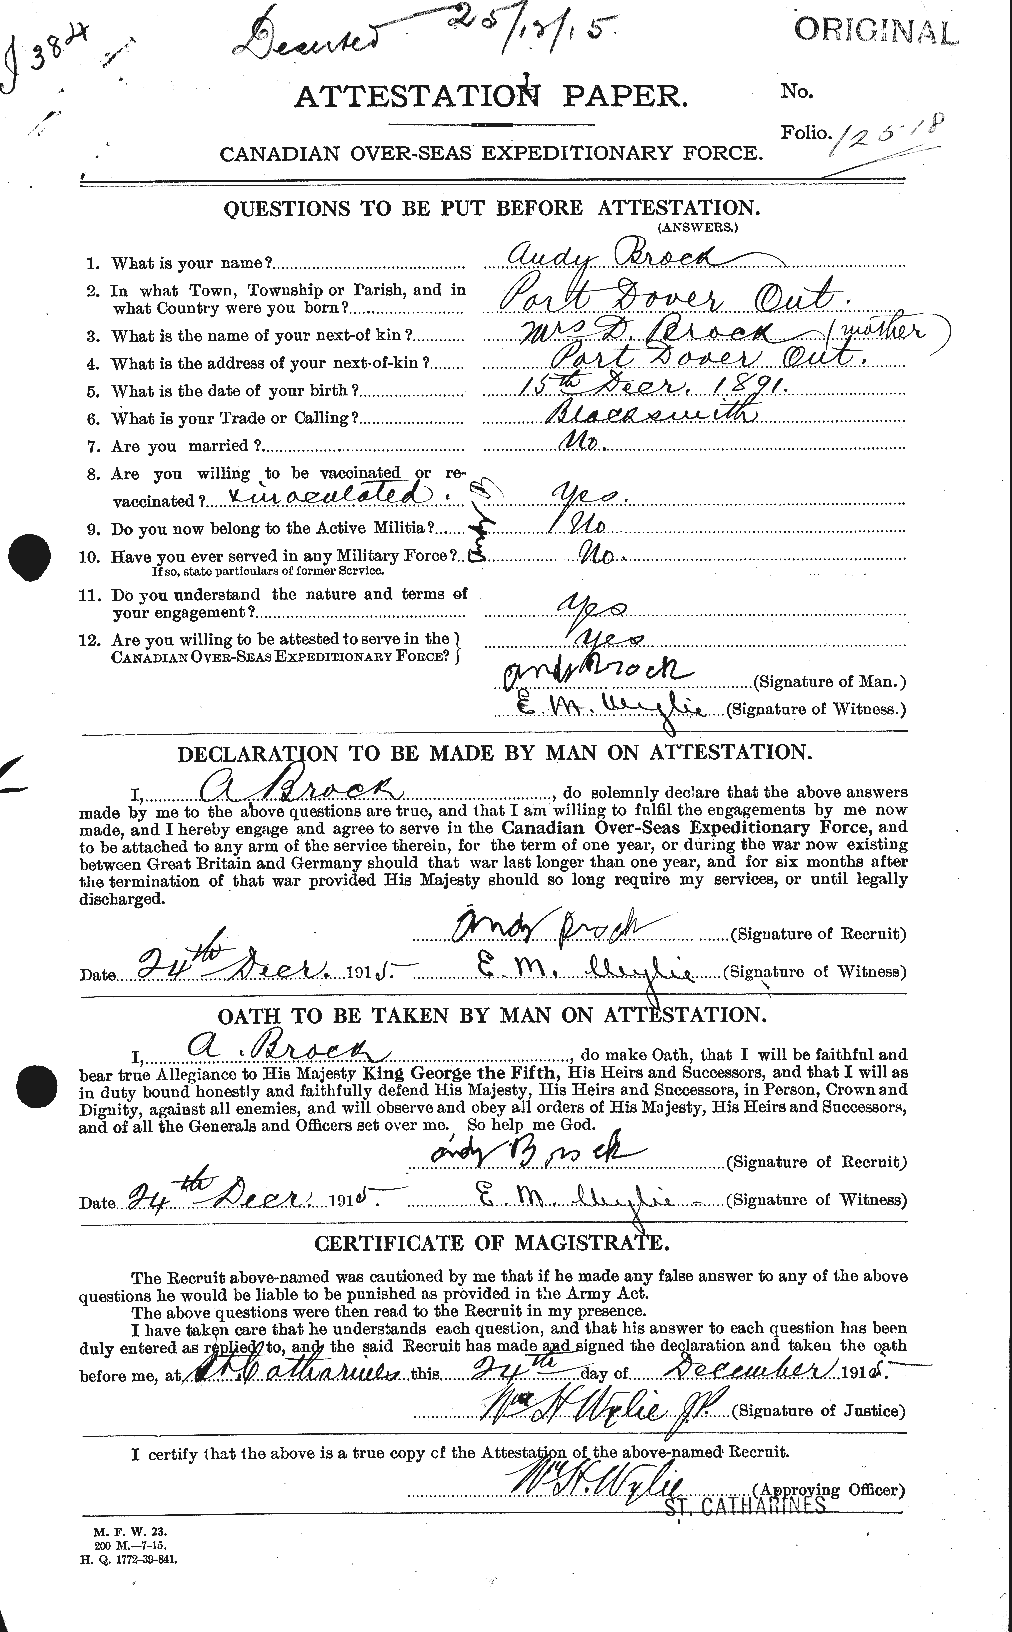 J 384
Deserted 25/12/15.
ORIGINAL
ATTESTATION PAPER.
No.
Folio. 12518
CANADIAN OVER-SEAS EXPEDITIONARY FORCE.
QUESTIONS TO BE PUT BEFORE ATTESTATION.
(ANSWERS.)
1. What is your name? Andy Brock
2. In what Town, Township or Parish, and in
what Country were you born? Port Dover Ont.
3. What is the name of your next-of kin? Mrs D. Brock (mother)
4. What is the address of your next-of-kin? Port Dover Ont.
5. What is the date of your birth? 15th Decr. 1891.
6. What is your Trade or Calling? Blacksmith
7. Are you married? No.
8. Are you willing to be vaccinated or re-
vaccinated? & inoculated. Yes.
9. Do you now belong to the Active Militia? No
10. Have you ever served in any Military Force? No.
If so, state particulars of former Service.
11. Do you understand the nature and terms of
your engagement? Yes
12. Are you willing to be attested to serve in the } Yes
CANADIAN OVER-SEAS EXPEDITIONARY FORCE? }
Andy Brock (Signature of Man.)
E. M. Wylie (Signature of Witness.)
DECLARATION TO BE MADE BY MAN ON ATTESTATION.
I, A Brock, do solemnly declare that the above answers
made by me to the above questions are true, and that I am willing to fulfil the engagements by me now
made, and I hereby engage and agree to serve in the Canadian Over-Seas Expeditionary Force, and
to be attached to any arm of the service therein, for the term of one year, or during the war now existing
between Great Britain and Germany should that war last longer than one year, and for six months after
the termination of that war provided His Majesty should so long require my services, or until legally
discharged.
Andy Brock (Signature of Recruit)
Date 24th Decr. 1915. E. M. Wylie (Signature of Witness)
OATH TO BE TAKEN BY MAN ON ATTESTATION.
I, A. Brock, do make Oath, that I will be faithful and
bear true Allegiance to His Majesty King George the Fifth, His Heirs and Successors, and that I will as
in duty bound honestly and faithfully defend His Majesty, His Heirs and Successors, in Person, Crown and
Dignity, against all enemies, and will observe and obey all orders of His Majesty, His Heirs and Successors,
and of all the Generals and Officers set over me. So help me God.
Andy Brock (Signature of Recruit)
Date 24th Decr. 1915. E. M. Wylie (Signature of Witness)
CERTIFICATE OF MAGISTRATE.
The Recruit above-named was cautioned by me that if he made any false answer to any of the above
questions he would be liable to be punished as provided in the Army Act.
The above questions were then read to the Recruit in my presence.
I have taken care that he understands each question, and that his answer to each question has been
duly entered as replied to, and the said Recruit has made and signed the declaration and taken the oath
before me, at St Catharines this 24th day of December 1915.
Wm H Wylie J.P. (Signature of Justice)
I certify that the above is a true copy of the Attestation of the above-named Recruit.
Wm H. Wylie (Approving Officer)
ST. CATHARINES
M. F. W. 23.
200 M.—7-15.
H. Q. 1772-39-841.